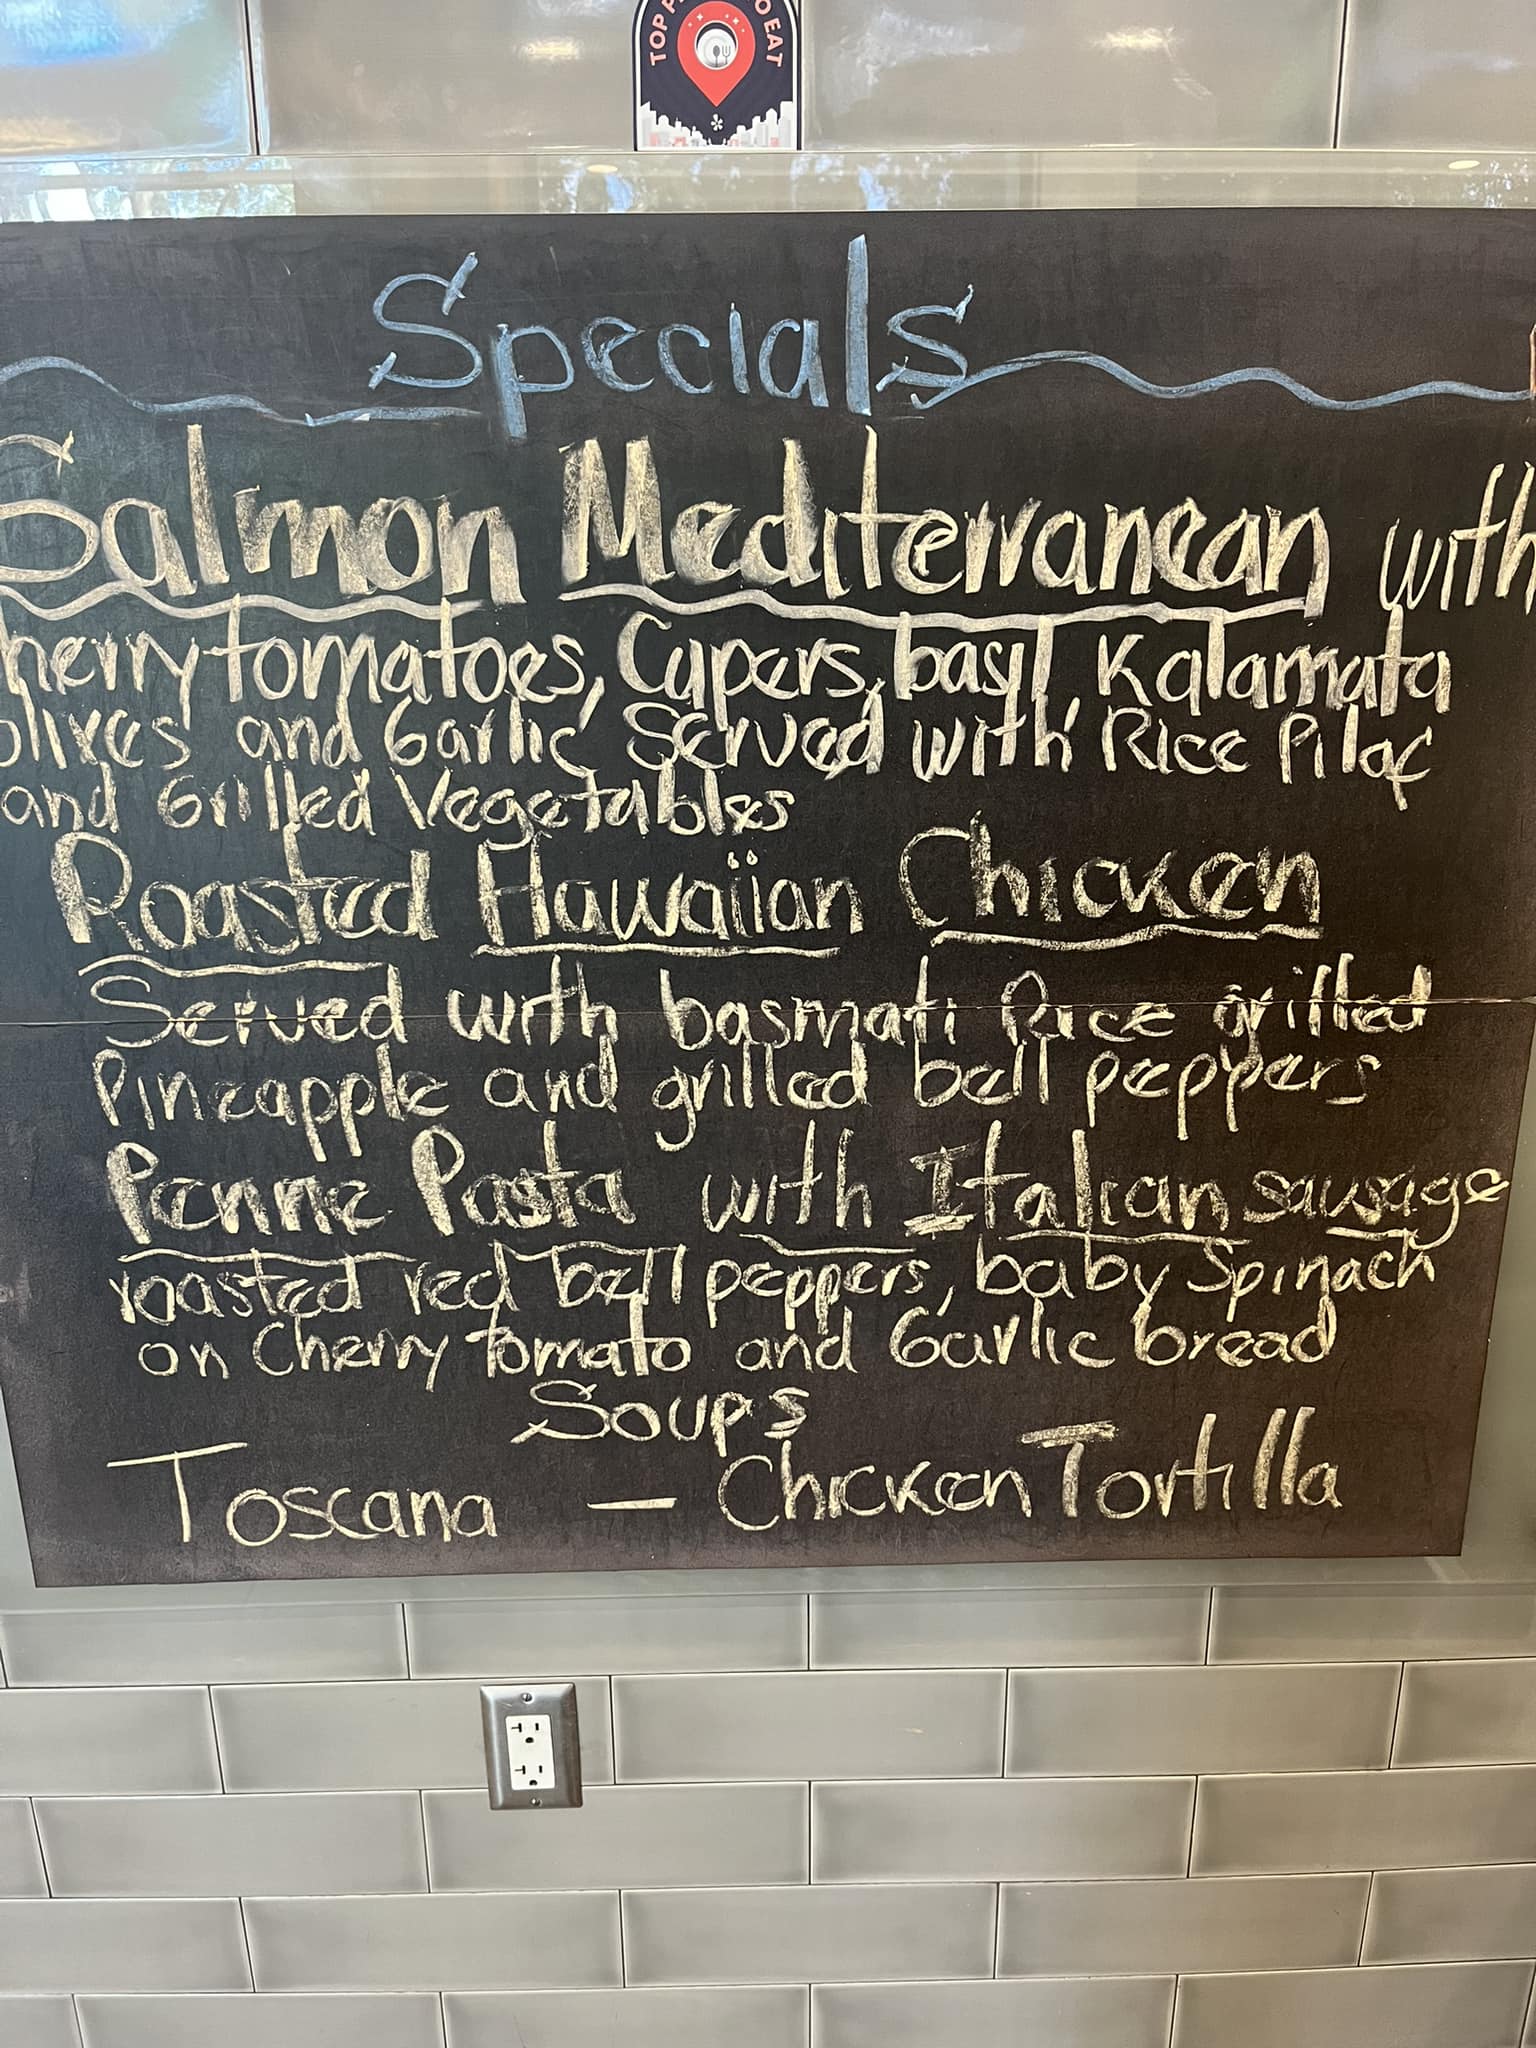 TOP P O EAT
Specials
Salmon Mediterranean with
herry tomatoes, Capers, basil, Kalamata
olives and Garlic, Served with Rice Pilaf
and Grilled Vegetables
Roasted Hawaiian Chicken
Served with basmati Rice grilled
Pineapple and grilled bell peppers
Penne Pasta with Italian sausage
roasted red bell peppers, baby Spinach
on Cherry tomato and Garlic bread
Soups
Toscana — Chicken Tortilla